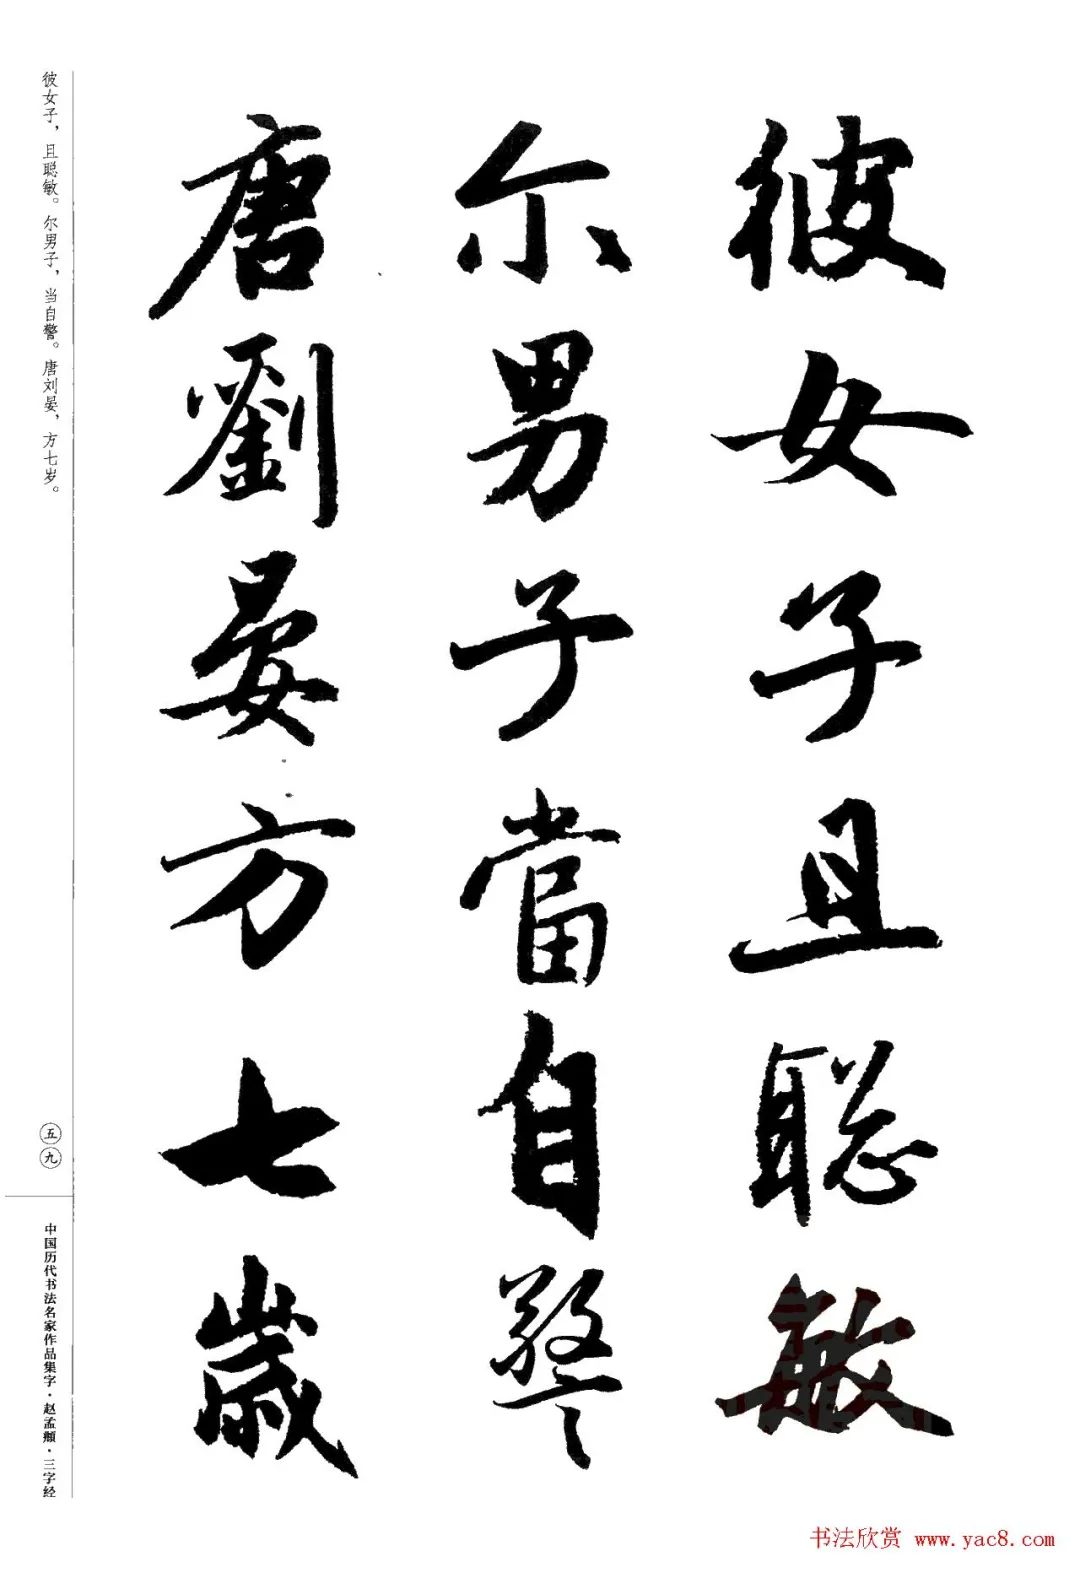 彼女子且聪敏
尔男子當自警
唐劉晏方七歲
彼女子，且聪敏。尔男子，当自警。唐刘晏，方七岁。
五九
中国历代书法名家作品集字·赵孟頫·三字经
书法欣赏 www.yac8.com